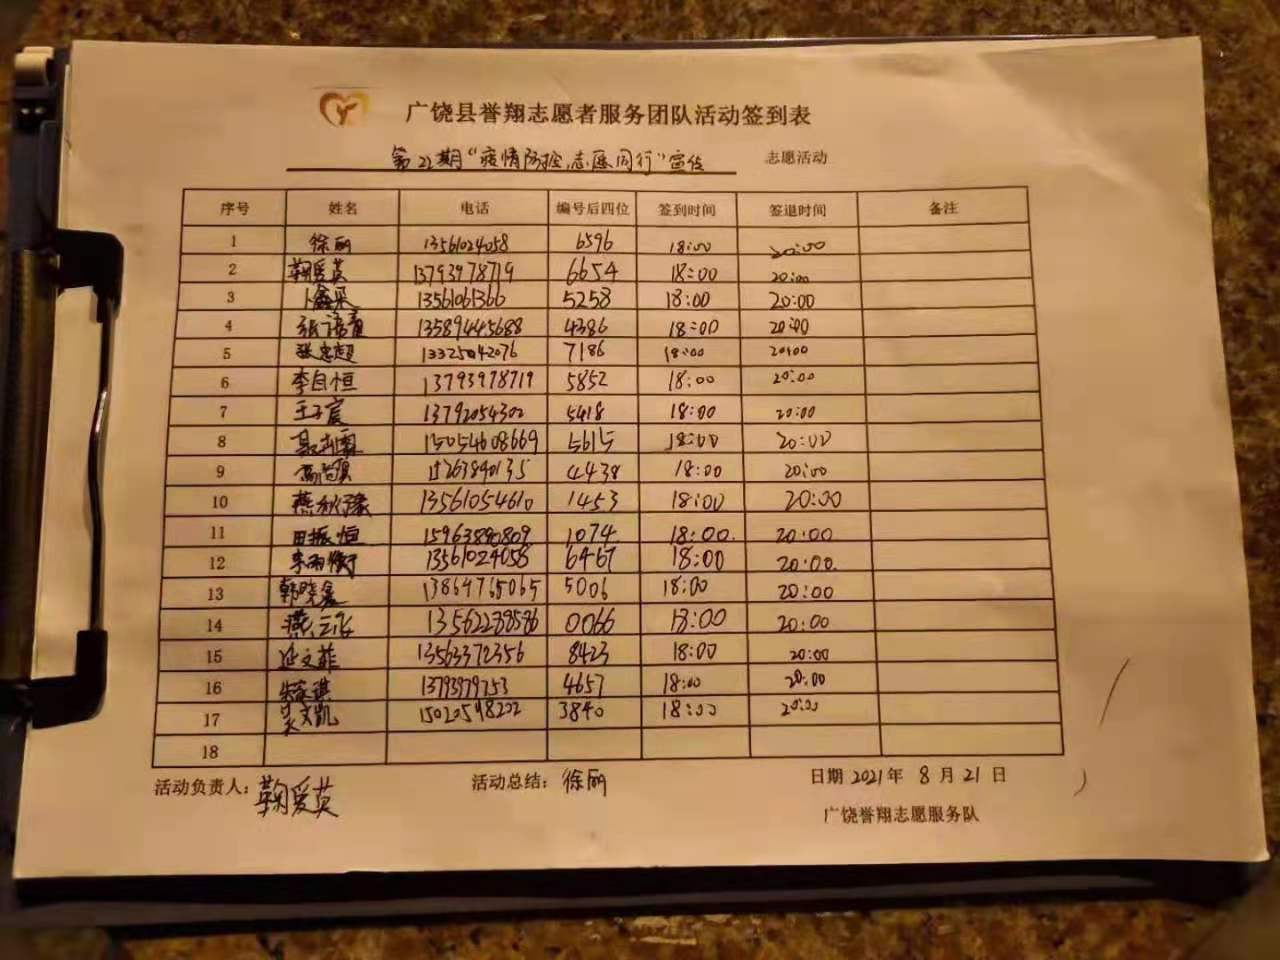 广饶县誉翔志愿者服务团队活动签到表
第22期“疫情防控,志愿同行”宣传 志愿活动
序号 姓名 电话 编号后四位 签到时间 签退时间 备注
1 徐丽 13561024058 6596 18:00 20:00
2 鞠爱英 13793978719 6654 18:00 20:00
3 卜鑫采 13561061366 5258 18:00 20:00
4 13589445688 4386 18:00 20:00
5 张忠超 13325042076 7186 18:00 20:00
6 李自恒 13793978719 5852 18:00 20:00
7 王子宸 13792054302 5418 18:00 20:00
8 15054608669 5615 18:00 20:00
9 15263890135 4438 18:00 20:00
10 13561054610 1453 18:00 20:00
11 田振恒 15963890809 1074 18:00 20:00
12 李雨衡 13561024058 6467 18:00 20:00
13 韩晓鑫 13864765065 5006 18:00 20:00
14 13562288586 0066 18:00 20:00
15 延文菲 13563372356 8423 18:00 20:00
16 13793979753 4657 18:00 20:00
17 吴文凯 15020598202 3840 18:00 20:00
18
活动负责人: 鞠爱英 活动总结: 徐丽 日期 2021年 8月21日
广饶誉翔志愿服务队